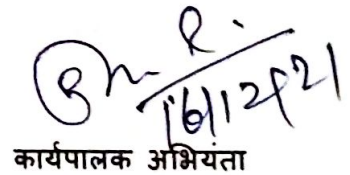 16/12/21
कार्यपालक अभियंता